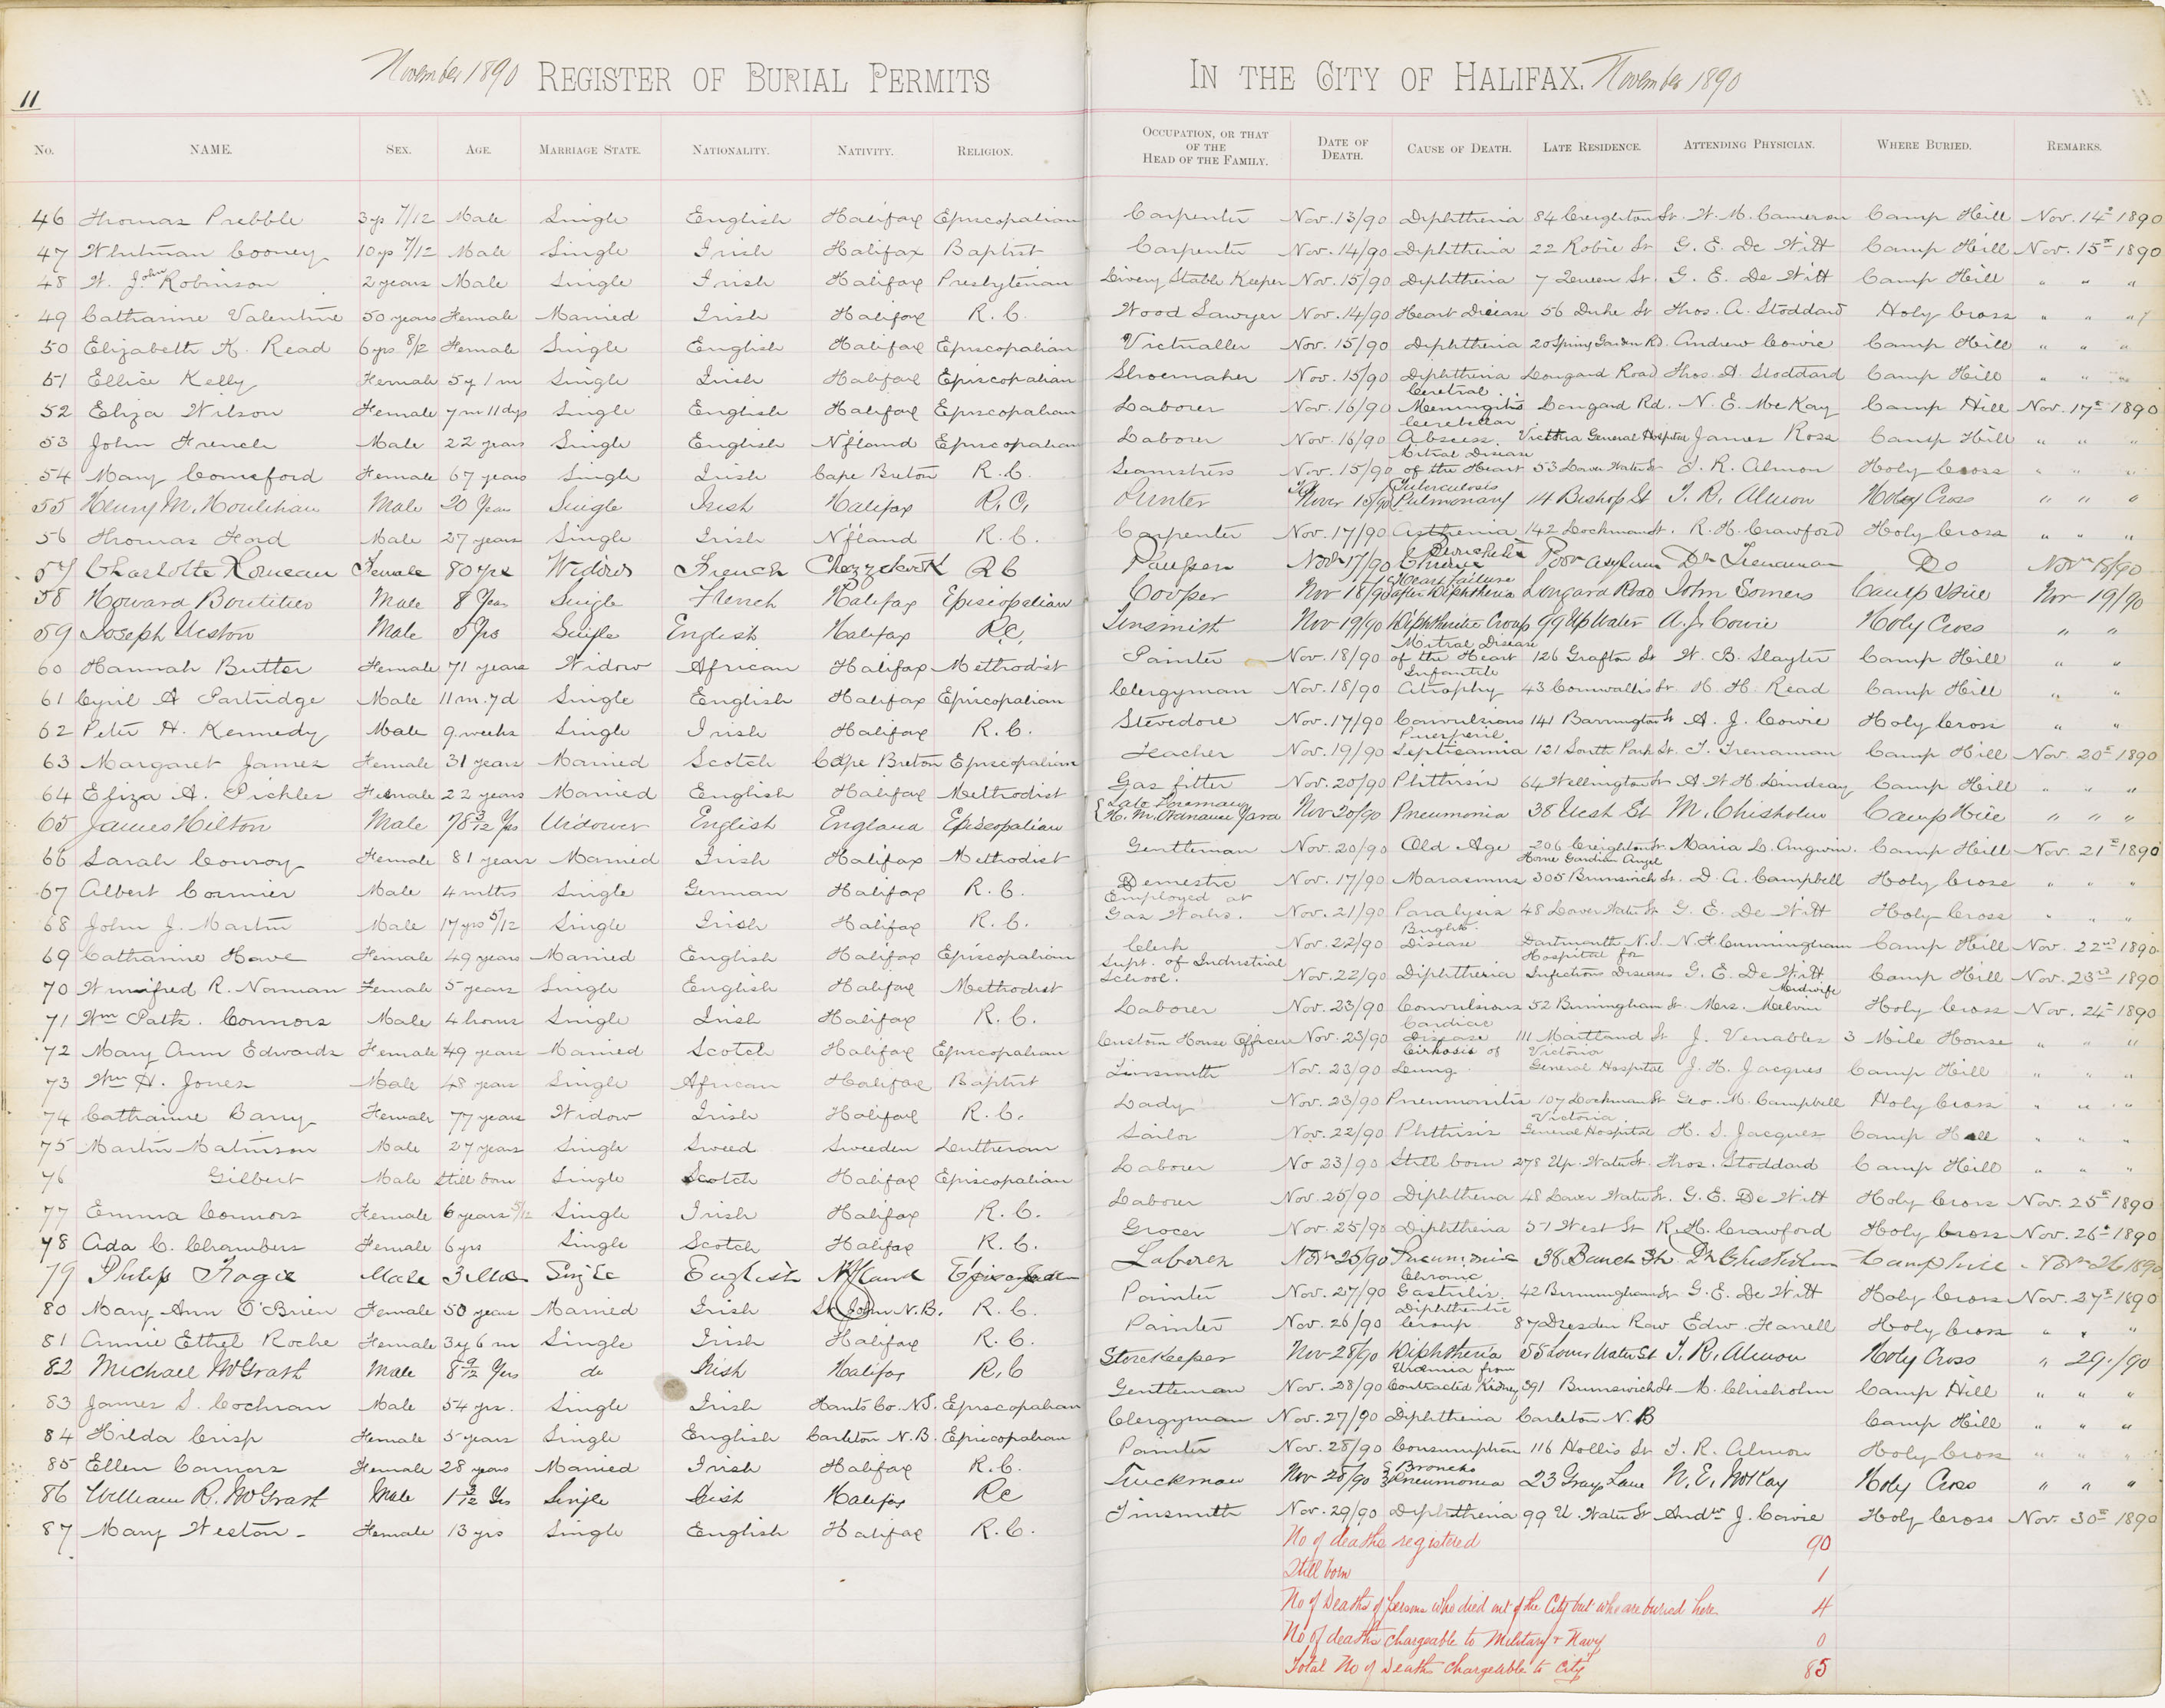 November 1890 REGISTER OF BURIAL PERMITS IN THE CITY OF HALIFAX. November 1890
11
No. NAME. SEX. AGE. MARRIAGE STATE. NATIONALITY. NATIVITY. RELIGION. OCCUPATION, OR THAT OF THE HEAD OF THE FAMILY. DATE OF DEATH. CAUSE OF DEATH. LATE RESIDENCE. ATTENDING PHYSICIAN. WHERE BURIED. REMARKS.
46 Thomas Prebble 3 ys 7/12 Male Single English Halifax Episcopalian Carpenter Nov. 13/90 Diphtheria 84 Creighton St. W. M. Cameron Camp Hill Nov. 14th 1890
47 Whitman Cooney 10 ys 7/12 Male Single Irish Halifax Baptist Carpenter Nov. 14/90 Diphtheria 22 Robie St G. E. De Witt Camp Hill Nov. 15th 1890
48 W. John Robinson 2 years Male Single Irish Halifax Presbyterian Livery Stable Keeper Nov. 15/90 Diphtheria 7 Queen St. G. E. De Witt Camp Hill " " "
49 Catharine Valentine 50 years Female Married Irish Halifax R. C. Wood Sawyer Nov. 14/90 Heart Disease 56 Duke St Thos. A. Stoddard Holy Cross " " "
50 Elizabeth K. Read 6 yrs 8/12 Female Single English Halifax Episcopalian Victualler Nov. 15/90 Diphtheria 20 Spring Garden Rd. Andrew Cowie Camp Hill " " "
51 Ellice Kelly Female 5 y 1 m Single Irish Halifax Episcopalian Shoemaker Nov. 15/90 Diphtheria Longard Road Thos. A. Stoddard Camp Hill " " "
52 Eliza Wilson Female 7 m 11 dys Single English Halifax Episcopalian Laborer Nov. 16/90 Cerebral Meningitis Longard Rd. N. E. McKay Camp Hill Nov. 17th 1890
53 John French Male 22 years Single English Nfland Episcopalian Laborer Nov. 16/90 Cerebellar Abscess. Victoria General Hospital James Ross Camp Hill " " "
54 Mary Comeford Female 67 years Single Irish Cape Breton R. C. Seamstress Nov. 15/90 Mitral Disease of the Heart 53 Lower Water St T. R. Almon Holy Cross " " "
55 Henry M. Houlihan Male 20 Years Single Irish Halifax R. C. Printer Novr 15/90 Tuberculosis Pulmonary 14 Bishop St T. R. Almon Holy Cross " " "
56 Thomas Ford Male 27 years Single Irish Nfland R. C. Carpenter Nov. 17/90 Asthenia 142 Lockman St. R. H. Crawford Holy Cross " " "
57 Charlotte Romeau Female 80 yrs Widow French Chezzetcook R C Pauper Novr 17/90 Chronic Bronchitis Poor Asylum Dr Trenaman Do Novr 18/90
58 Howard Boutilier Male 8 Years Single French Halifax Episcopalian Cooper Nov 18/90 Heart failure after Diphtheria Longard Road John Somers Camp Hill Nov 19/90
59 Joseph Weston Male 5 Yrs Single English Halifax RC. Tinsmith Nov 19/90 Diphtheritic Croup 99 Up Water A. J. Cowie Holy Cross " "
60 Hannah Butler Female 71 years Widow African Halifax Methodist Painter Nov. 18/90 Mitral Disease of the Heart 126 Grafton St W. B. Slayter Camp Hill " "
61 Cyril A Partridge Male 11 m. 7 d Single English Halifax Episcopalian Clergyman Nov. 18/90 Infantile Atrophy 43 Cornwallis St H. H. Read Camp Hill " "
62 Peter H. Kennedy Male 9 weeks Single Irish Halifax R. C. Stevedore Nov. 17/90 Convulsions 141 Barrington St A. J. Cowie Holy Cross " "
63 Margaret James Female 31 years Married Scotch Cape Breton Episcopalian Teacher Nov. 19/90 Puerperil Septicamia 121 South Park St. T. Trenaman Camp Hill Nov. 20th 1890
64 Eliza A. Pickles Female 22 years Married English Halifax Methodist Gas fitter Nov. 20/90 Phthisis 64 Wellington St A W H Lindsay Camp Hill " " "
65 James Hilton Male 78 3/12 Yrs Widower English England Episcopalian Late Foreman H. M. Ordnance Yard Nov 20/90 Pneumonia 38 West St M. Chisholm Camp Hill " " "
66 Sarah Conroy Female 81 years Married Irish Halifax Methodist Gentleman Nov. 20/90 Old Age 206 Creighton St. Maria L. Angwin. Camp Hill Nov. 21st 1890
67 Albert Cormier Male 4 mths Single German Halifax R. C. Domestic Nov. 17/90 Marasmus Home Gardian Angel 305 Brunswick St. D. A. Campbell Holy Cross " " "
68 John J. Martin Male 17 yrs 5/12 Single Irish Halifax R. C. Employed at Gas Works. Nov. 21/90 Paralysis 48 Lower Water St G. E. De Witt Holy Cross " " "
69 Catharine Howe Female 49 years Married English Halifax Episcopalian Clerk Nov. 22/90 Brights Disease Dartmouth N. S. N. F. Cunningham Camp Hill Nov. 22nd 1890.
70 Winifred R. Norman Female 5 years Single English Halifax Methodist Supt. of Industrial School. Nov. 22/90 Diphtheria Hospital for Infectious Diseases G. E. De Witt Camp Hill Nov. 23rd 1890
71 Wm Patk. Connors Male 4 hours Single Irish Halifax R. C. Laborer Nov. 23/90 Convulsions 52 Birmingham St. Mrs. Melvin Midwife Holy Cross Nov. 24th 1890
72 Mary Ann Edwards Female 49 years Married Scotch Halifax Episcopalian Custom House Officer Nov. 23/90 Cardiac Disease 111 Maitland St J. Venables 3 Mile House " " "
73 Wm H. Jones Male 48 years Single African Halifax Baptist Tinsmith Nov. 23/90 Cirhosis of Lung Victoria General Hospital J. H. Jacques Camp Hill " " "
74 Catharine Barry Female 77 years Widow Irish Halifax R. C. Lady Nov. 23/90 Pneumonitis 107 Lockman St Geo. M. Campbell Holy Cross " " "
75 Martin Matinson Male 27 years Single Sweed Sweeden Lutheran Sailor Nov. 22/90 Phthisis Victoria General Hospital H. S. Jacques Camp Hill " " "
76 Gilbert Male Still born Single Scotch Halifax Episcopalian Laborer No 23/90 Still born 278 Up. Water St. Thos. Stoddard Camp Hill " " "
77 Emma Connors Female 6 years 5/12 Single Irish Halifax R. C. Laborer Nov. 25/90 Diphtheria 48 Lower Water St. G. E. De Witt Holy Cross Nov. 25th 1890
78 Ada C. Chambers Female 6 yrs Single Scotch Halifax R. C. Grocer Nov. 25/90 Diphtheria 57 West St R. H. Crawford Holy Cross Nov. 26th 1890
79 Philip Male 3 Mos Single English Nfland Episcopalian Laborer Novr 25/90 Pneumonia 38 St Dr Chisholm Camp hill Novr 26 1890
80 Mary Ann O'Brien Female 50 years Married Irish St John N. B. R. C. Painter Nov. 27/90 Chronic Gastritis. 42 Birmingham St G. E. De Witt Holy Cross Nov. 27th 1890
81 Annie Ethel Roche Female 3 y 6 m Single Irish Halifax R. C. Painter Nov. 26/90 Diphtheritic Croup 87 Dresden Row Edw. Farrell Holy Cross " " "
82 Michael McGrath Male 8 9/12 Yrs do Irish Halifax R. C Storekeeper Nov 28/90 Diphtheria 55 Lower Water St T. R. Almon Holy Cross " 29/90
83 James S. Cochran Male 54 yrs. Single Irish Hants Co. N.S. Episcopalian Gentleman Nov. 28/90 Uremia from Contracted Kidney 391 Brunswick St M. Chisholm Camp Hill " " "
84 Hilda Crisp Female 5 years Single English Carleton N. B. Episcopalian Clergyman Nov. 27/90 Diphtheria Carleton N. B Camp Hill " " "
85 Ellen Connors Female 28 years Married Irish Halifax R. C. Painter Nov. 28/90 Consumption 116 Hollis St T. R. Almon Holy Cross " " "
86 William R. McGrath Male 1 3/12 Yrs Single Irish Halifax RC Truckman Nov 28/90 Broncho Pneumonia 23 Grays Lane N. E. McKay Holy Cross " " "
87 Mary Weston - Female 13 yrs Single English Halifax R. C. Tinsmith Nov. 29/90 Diphtheria 99 U. Water St Andw J. Cowie Holy Cross Nov. 30th 1890
No of deaths registered 90
Still born 1
No of Deaths of persons who died out of the City but who are buried here 4
No of deaths chargeable to Military & Navy 0
Total No of Deaths chargeable to City 85